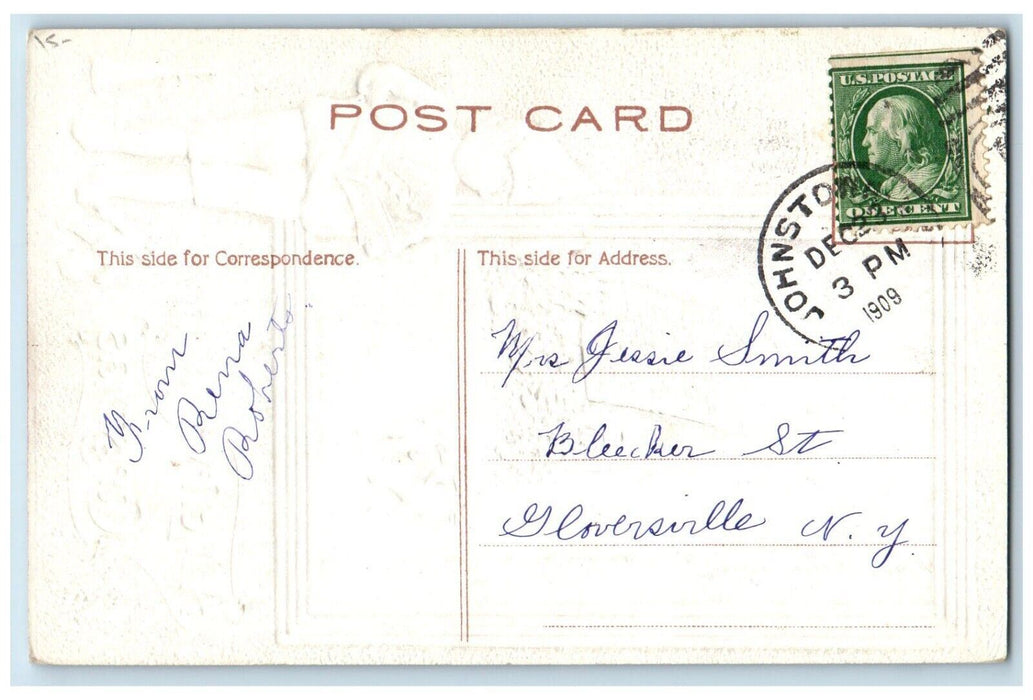 15-
POST CARD
U.S. POSTAGE
ONE CENT
JOHNSTOWN
DEC
3 PM
1909
This side for Correspondence.
This side for Address.
From
Rena
Roberts.
Mrs Jessie Smith
Bleecker St
Gloversville N. Y